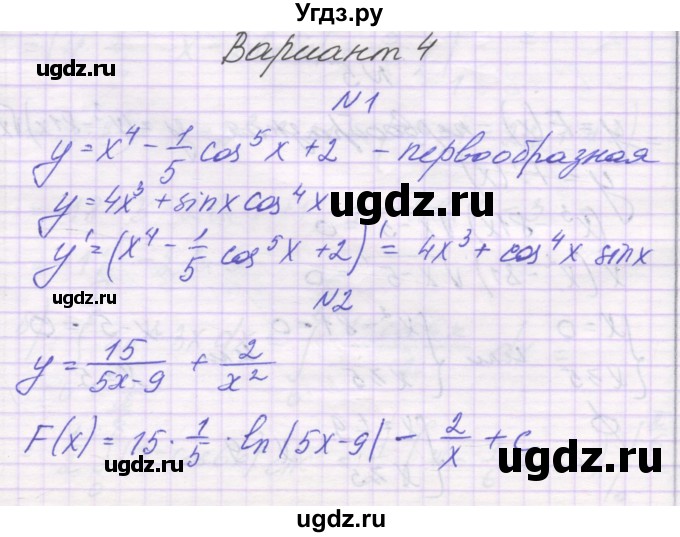 Угдз.ру
Вариант 4
ugdz.ru
N1
ugdz.ru
y = x⁴ - 1/5 cos⁵x + 2 - первообразная
y = 4x³ + sinx cos⁴x
ugdz.ru
y' = (x⁴ - 1/5 cos⁵x + 2)' = 4x³ + cos⁴x sinx
ugdz.ru
N2
ugdz.ru
y = 15/(5x-9) + 2/x²
ugdz.ru
F(x) = 15 · 1/5 · ln|5x-9| - 2/x + C
ugdz.ru
ugdz.ru
ugdz.ru